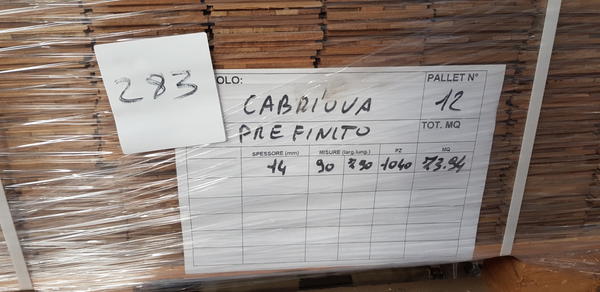 283
OLO:
PALLET N°
CABRIUVA
12
PREFINITO
TOT. MQ
SPESSORE (mm) MISURE (larg.lung.) PZ MQ
14 90 790 1040 73.94